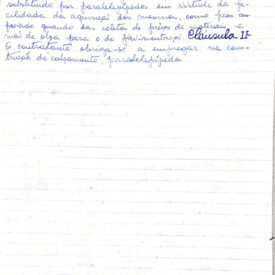 substituido por paralelepípedos em virtude da fa-
cilidade da aquisição dos mesmos, como ficou com
provado quando das coletas de preços de materiais, e
mão de obra para o de pavimentação Cláusula II-
O contratante obriga-se a empregar na cons-
trução do calçamento, paralelepípedos